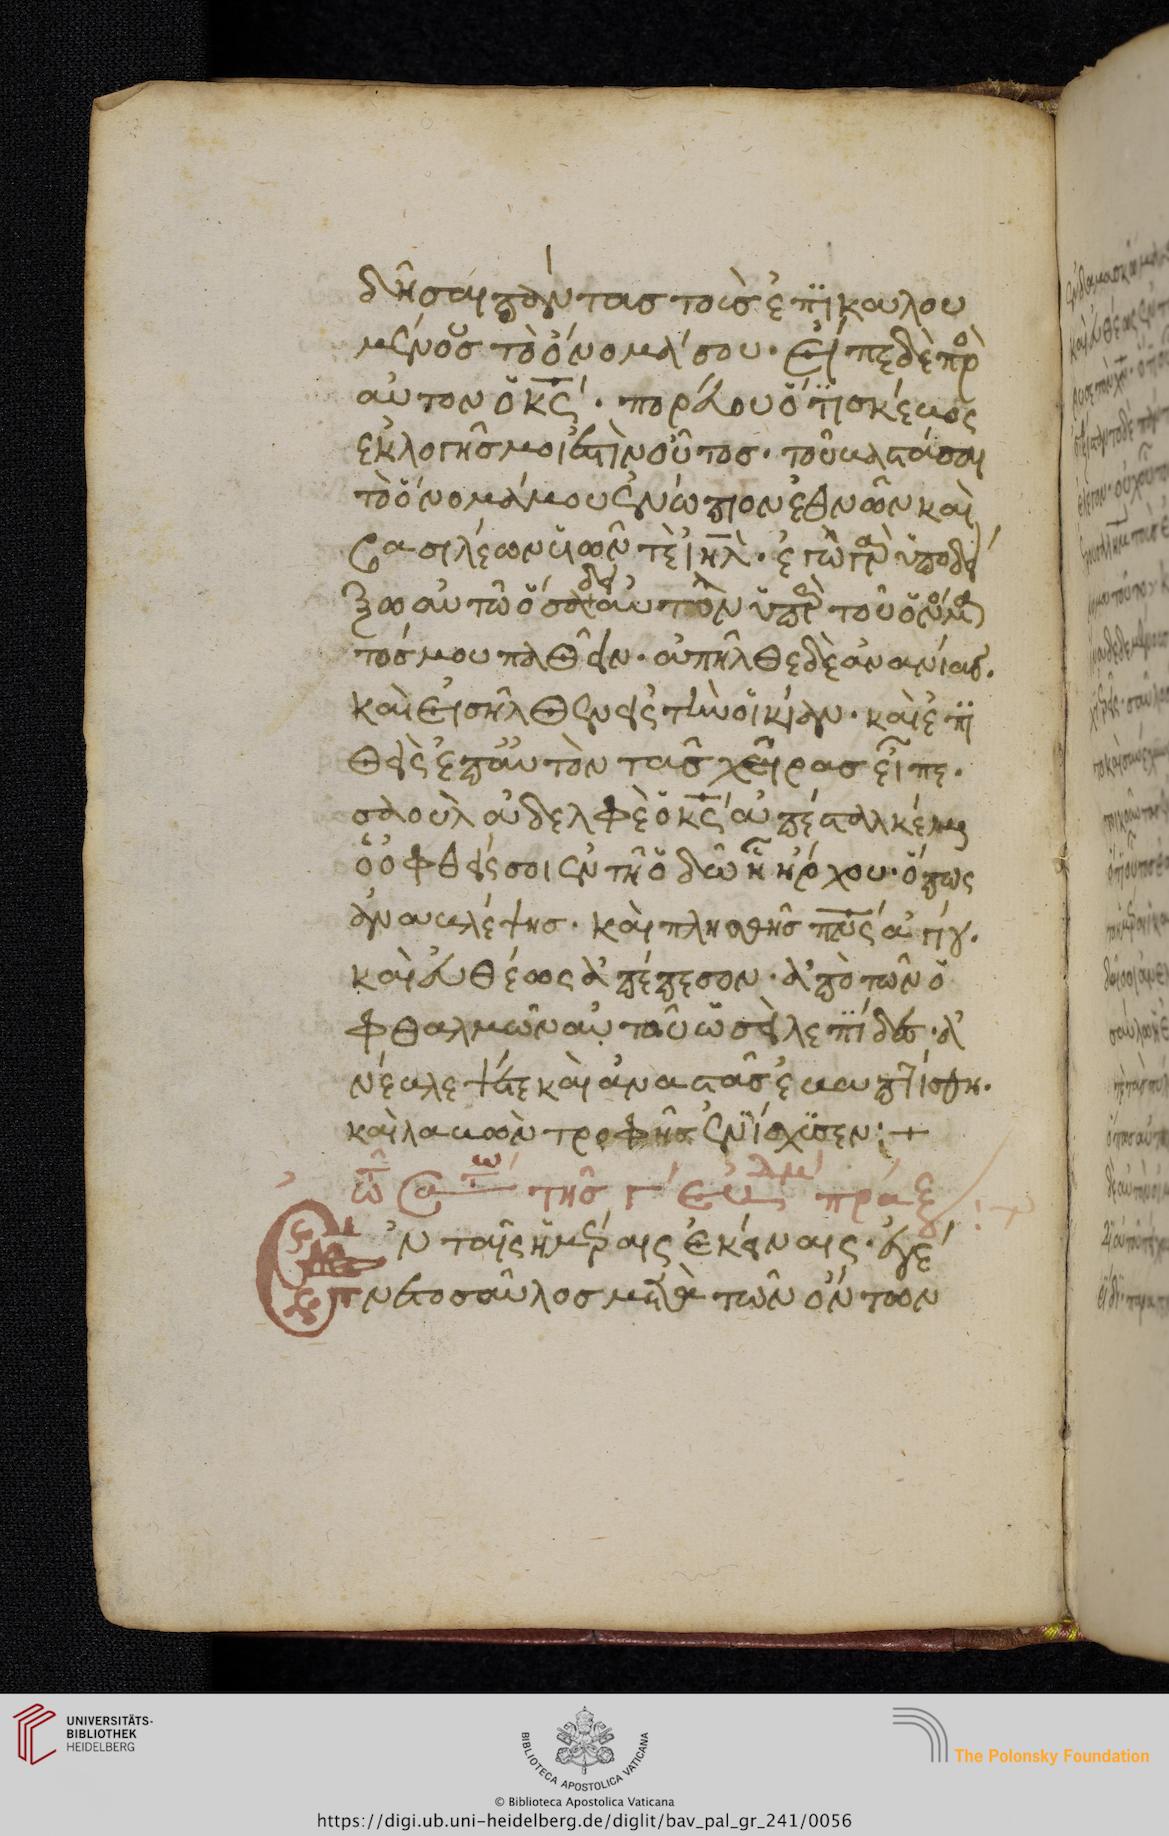 δῆσαι πάντας τοὺς ἐπικαλου
μένους τὸ ὄνομά σου· εἶπε δὲ πρὸ
αὐτον ὁ κς· πορεύου ὅτι σκεῦος
ἐκλογῆς μοι ἐστὶν οὗτος· τοῦ βαστάσαι
τὸ ὄνομά μου ἐνώπιον ἐθνῶν καὶ
βασιλέων υἱῶν τὲ ιηλ· ἐγὼ γὰρ ὑποδεί
ξω αὐτῶ ὅσα δεῖ αὐτὸν ὑπὲρ τοῦ ὀνόμα
τός μου παθεῖν· ἀπῆλθε δὲ ἀνανίας.
καὶ εἰσῆλθεν εἰς τὴν οἰκίαν· καὶ ἐπι
θεὶς ἐπ αὐτὸν τὰς χεῖρας εἶπε.
σαοὺλ ἀδελφὲ ὁ κς ἀπέσταλκέ με
ὁ ὀφθείς σοι ἐν τῆ ὁδῶ ἧ ἤρχου· ὅπως
ἀναβλέψης· καὶ πλησθῆς πνς ἁγίου.
καὶ εὐθέως ἀπέπεσον· ἀπὸ τῶν ὀ
φθαλμῶν αὐτοῦ ὡσεὶ λεπίδες· ἀ
νέβλεψέ τε καὶ ἀναστὰς ἐβαπτίσθη.
καὶ λαβὼν τροφὴν ἐνίσχυσεν:+
τῆς γ ἑβδμ πράξ
Ἐν ταῖς ἡμέραις ἐκείναις· ἐγέ
νετο σαῦλος μετὰ τῶν ὄντων
UNIVERSITÄTS-
BIBLIOTHEK
HEIDELBERG
BIBLIOTECA APOSTOLICA VATICANA
The Polonsky Foundation
© Biblioteca Apostolica Vaticana
https://digi.ub.uni-heidelberg.de/diglit/bav_pal_gr_241/0056